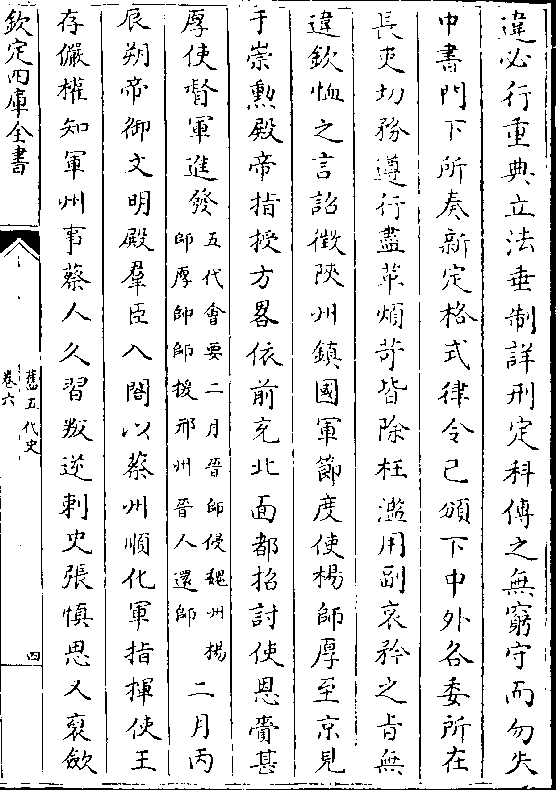 違必行重典立法垂制詳刑定科傳之無窮守而勿失
中書門下所奏新定格式律令已頒下中外各委所在
長吏切務遵行盡革煩苛皆除枉濫用副哀矜之旨無
違欽恤之言詔徵陜州鎮國軍節度使楊師厚至京見
于崇勲殿帝指授方畧依前充北面都招討使恩賚甚
厚使督軍進發五代會要二月晉師侵魏州楊師厚帥師援邢州晉人還師二月丙
辰朔帝御文明殿羣臣入閤以蔡州順化軍指揮使王
存儼權知軍州事蔡人久習叛逆刺史張慎思又裒斂
欽定四庫全書
舊五代史
卷六
四